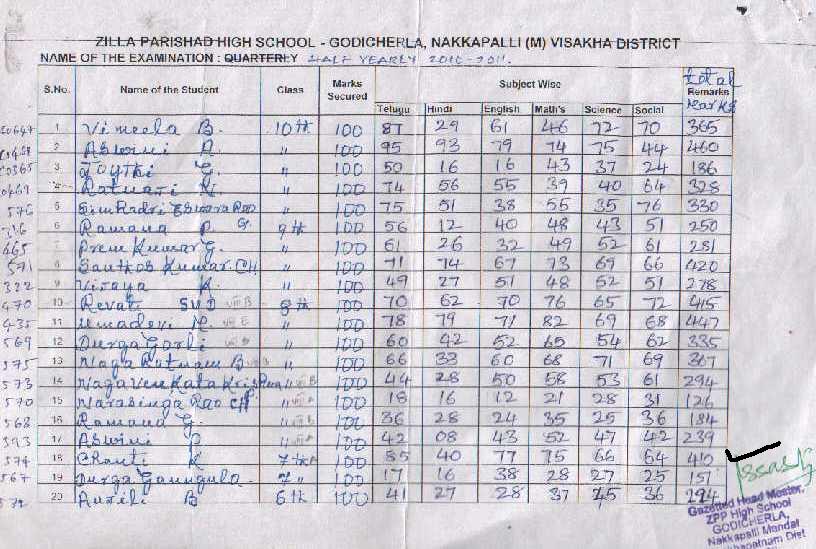 ZILLA PARISHAD HIGH SCHOOL - GODICHERLA, NAKKAPALLI (M) VISAKHA DISTRICT
NAME OF THE EXAMINATION : QUARTERLY HALF YEARLY 2010-2011.
S.No. Name of the Student Class Marks Secured Subject Wise total Remarks marks
Telugu Hindi English Math's Science Social
1 Vimeela B. 10th 100 87 29 61 46 72 70 365
2 Aswini P. " 100 95 93 79 74 75 44 460
3 Joythi G. " 100 50 16 16 43 37 24 186
4 Ratnari K. " 100 74 56 55 39 40 64 328
576 5 Simhadri Eswara Rao " 100 75 51 38 55 35 76 330
6 Ramana P. G. 9th 100 56 12 40 48 43 51 250
465 7 Prem Kumar G. " 100 61 26 32 49 52 61 281
591 8 Santhos Kumar.CH " 100 71 74 67 73 69 66 420
322 9 Vijaya K. " 100 49 27 51 48 52 51 278
470 10 Revati SVD VIII B 8th 100 70 62 70 76 65 72 415
435 11 Umadevi M. VIII B " 100 78 79 71 82 69 68 447
569 12 Durga Gorli VIII B " 100 60 42 52 65 54 62 335
575 13 Naga Ratnam B VIII B " 100 66 33 60 68 71 69 367
573 14 Nagavenkata Krishna " VIII B 100 44 28 50 58 53 61 294
570 15 Narasinga Rao CH " VIII A 100 18 16 12 21 28 31 126
568 16 Ramana G. " VIII A 100 36 28 24 35 25 36 184
593 17 Aswini P " VIII A 100 42 08 43 52 47 42 239
574 18 Chanti K 7th A 100 85 40 77 75 66 64 410
567 19 Durga Gaungula 7 " 100 17 16 38 28 27 25 151
20 B 6th 100 41 27 28 37 45 36
Gazetted Head Master,
ZPP High School
GODICHERLA,
Nakkapalli Mandal
Dist